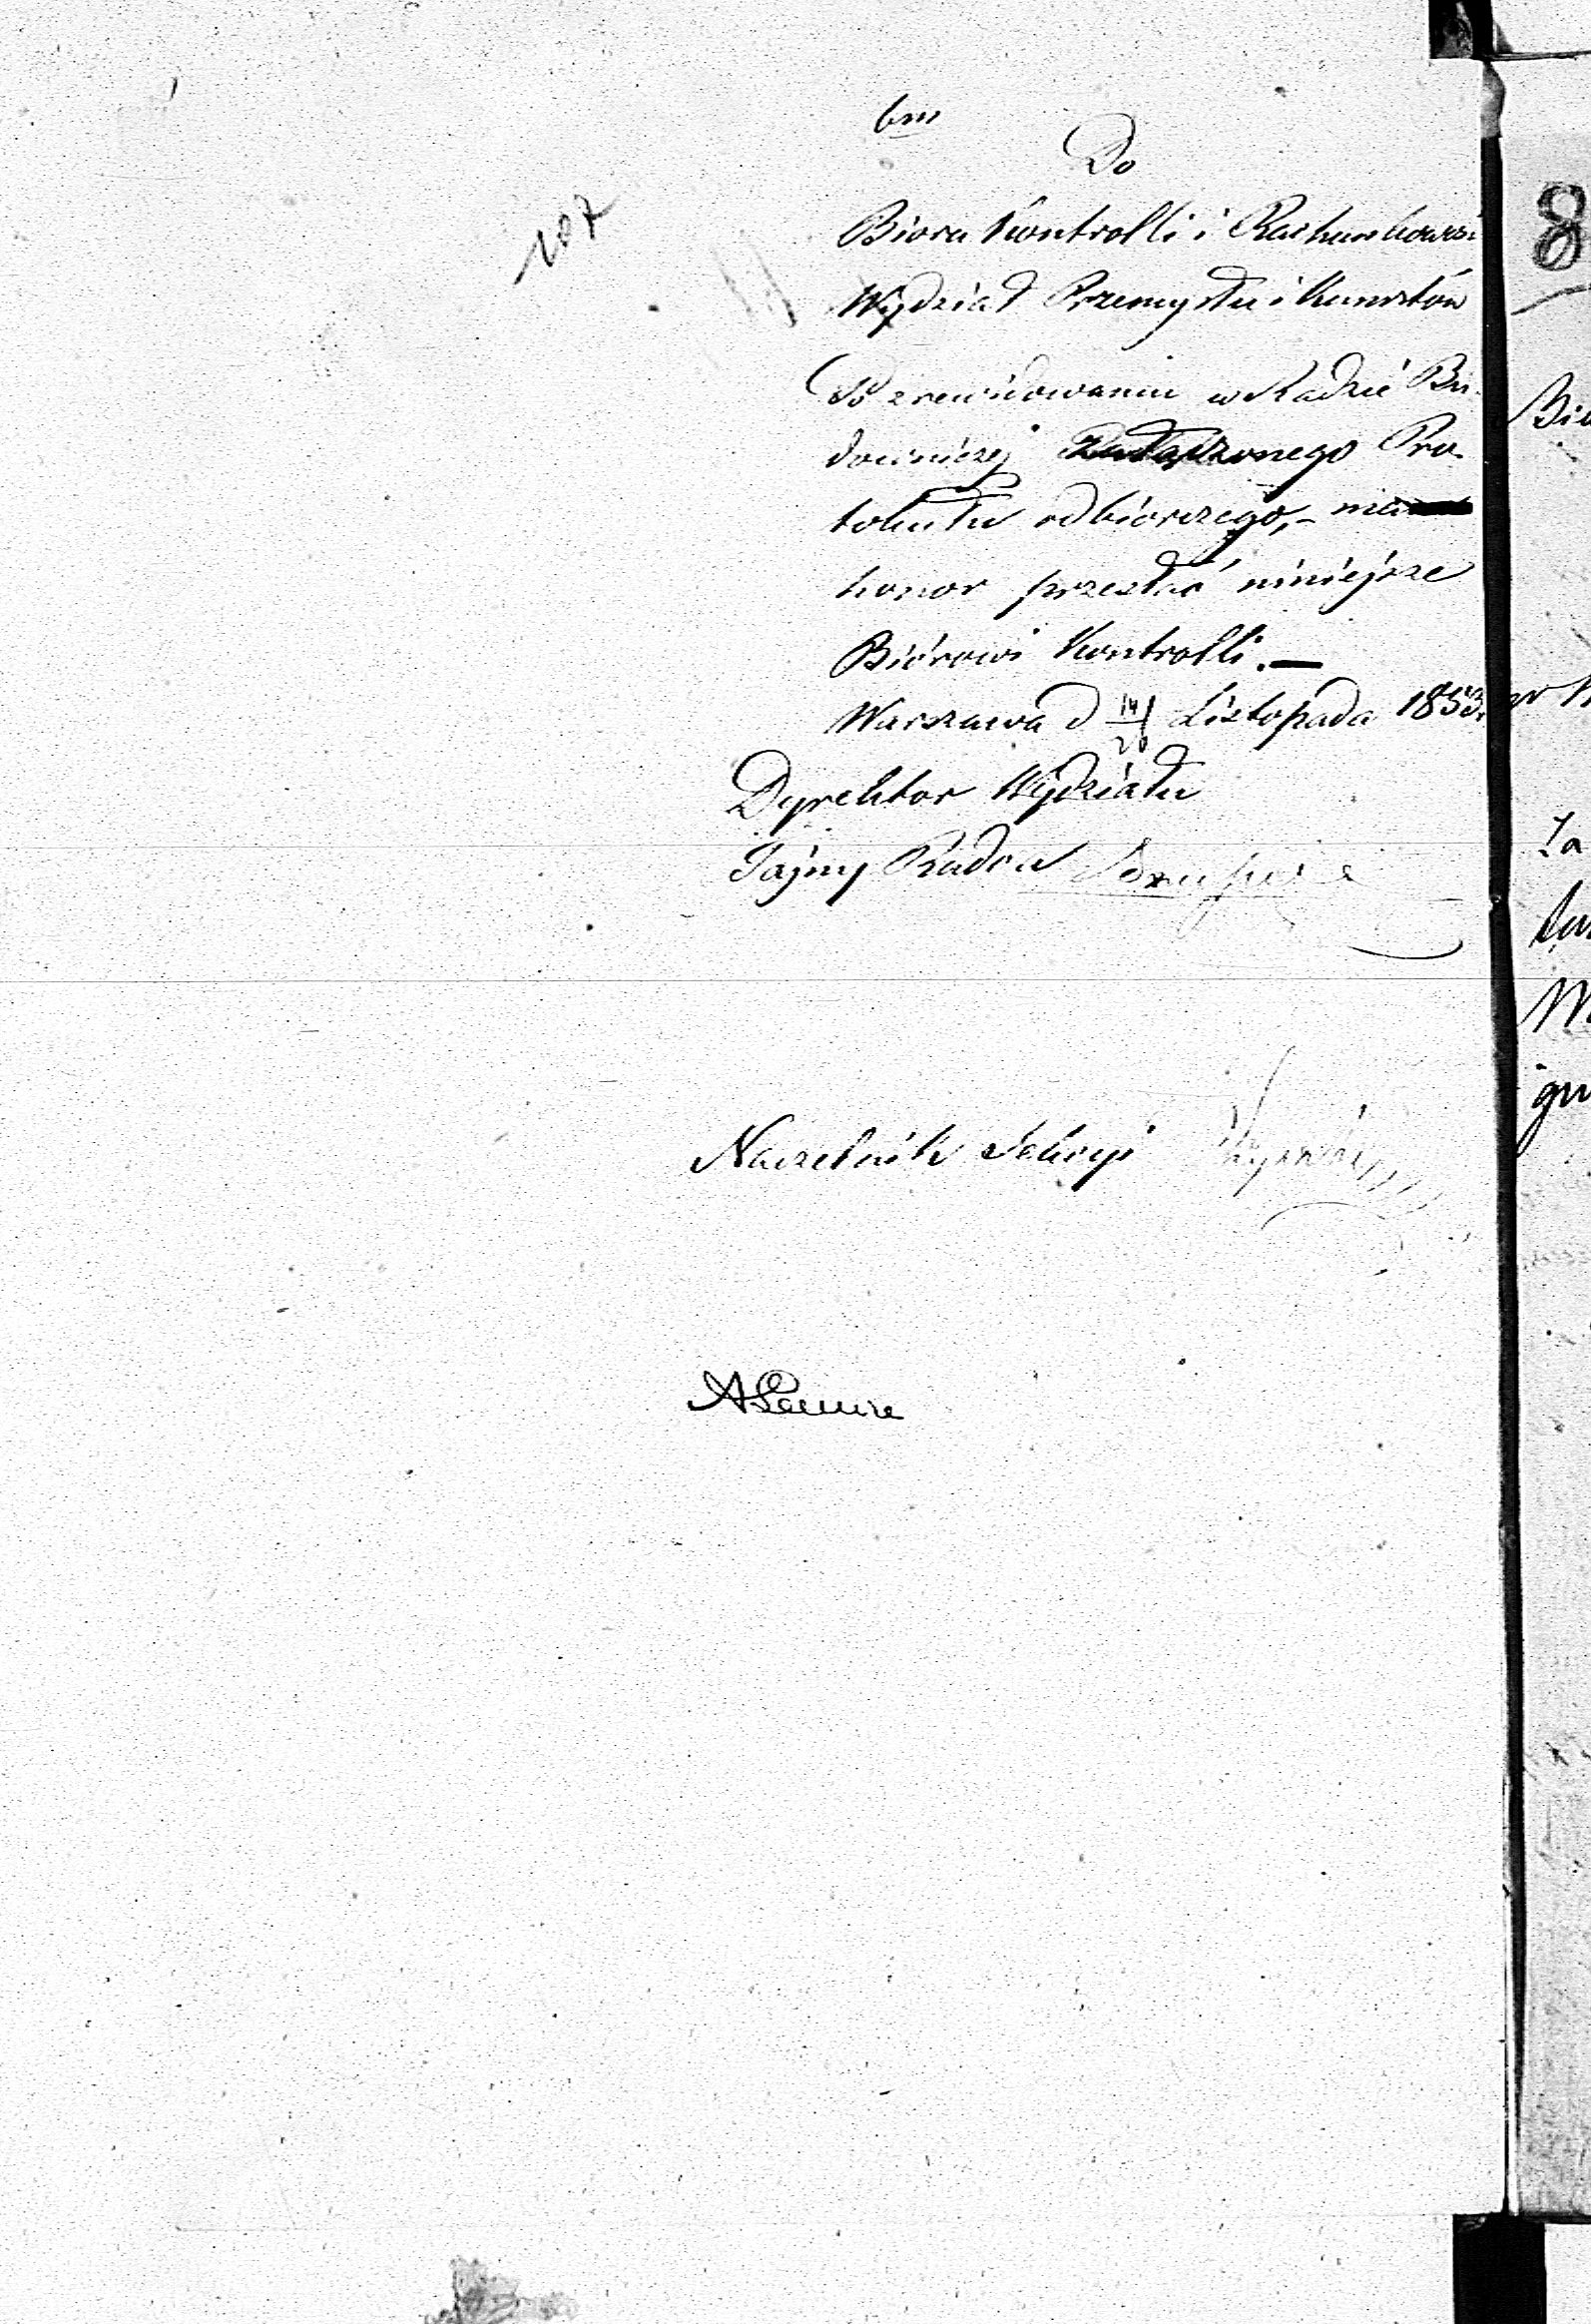 bm
Do
107
Biora Kontrolli i Rachunkowości
Wydział Przemysłu i Kunsztów
Po zrewidowaniu w Radzie Bu-
downiczej Załączonego Pro-
tokułu odbiorczego, - ma
honor przesłać niniejsze
Biórowi Kontrolli. —
Warszawa d 14/26 Listopada 1853.
Dyrektor Wydziału
Tajny Radca
Naczelnik Sekcyi
8
Za